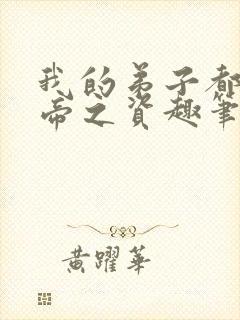 我的弟子都
帝之資趣筆
黃躍華